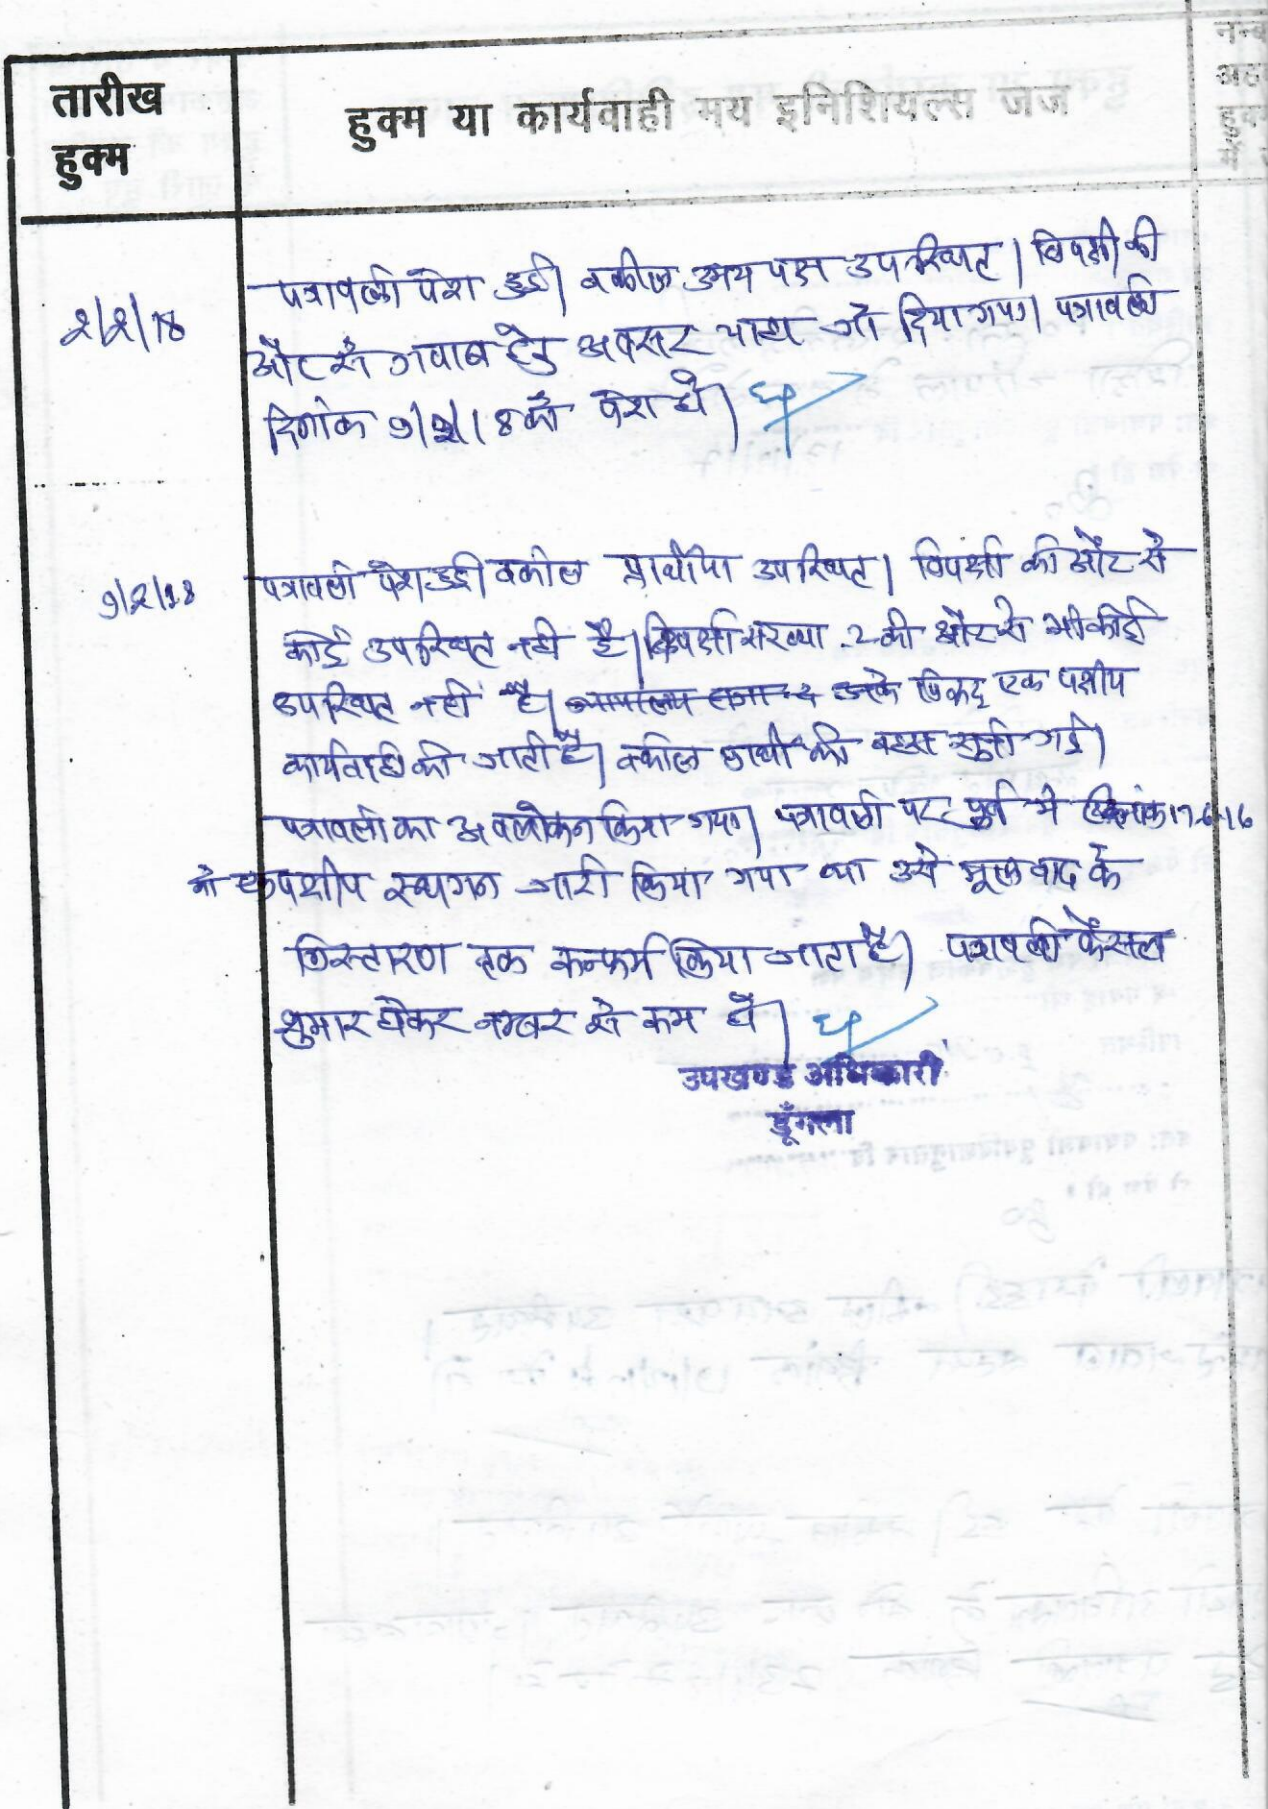 तारीख
हुक्म
हुक्म या कार्यवाही मय इनिशियल्स जज
2/2/18
पत्रावली पेश हुई। वकील उभय पक्ष उपस्थित। विपक्षी की
और से जवाब हेतु अवसर चाहा जो दिया गया। पत्रावली
दिनांक 9/2/18 को पेश हो।
9/2/18
पत्रावली पेश हुई। वकील प्रार्थीया उपस्थित। विपक्षी की और से
कोई उपस्थित नही है। विपक्षी संख्या 2 की और से भी कोई
उपस्थित नहीं है। उनके विरुद्ध एक पक्षीय
कार्यवाही की जाती है। वकील प्रार्थी की बहस सुनी गई।
पत्रावली का अवलोकन किया गया। पत्रावली पर पूर्व मे दिनांक 17-6-16
को एकपक्षीय स्थगन जारी किया गया था उसे मूल वाद के
निस्तारण तक कन्फर्म किया जाता है। पत्रावली फैसल
शुमार होकर नम्बर से कम हो।
उपखण्ड अधिकारी
डूँगला